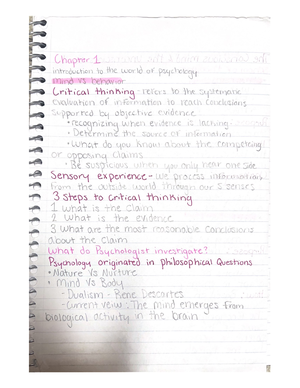 Chapter 1
introduction to the world of psychology
Mind vs behavior
Critical thinking - refers to the systematic
evaluation of information to reach conclusions
supported by objective evidence
• recognizing when evidence is lacking
• Determine the source of information
• What do you know about the competing
or opposing claims
• Be suspicious when you only hear one side
Sensory experience - we process information
from the outside world through our 5 senses
3 Steps to critical thinking
1 What is the claim
2 What is the evidence
3 What are the most reasonable conclusions
about the claim
What do Psychologist investigate?
Psychology originated in philosophical Questions
• Nature vs Nurture
• Mind vs Body
- Dualism - Rene Descartes
- Current veiw: The mind emerges from
biological activity in the brain